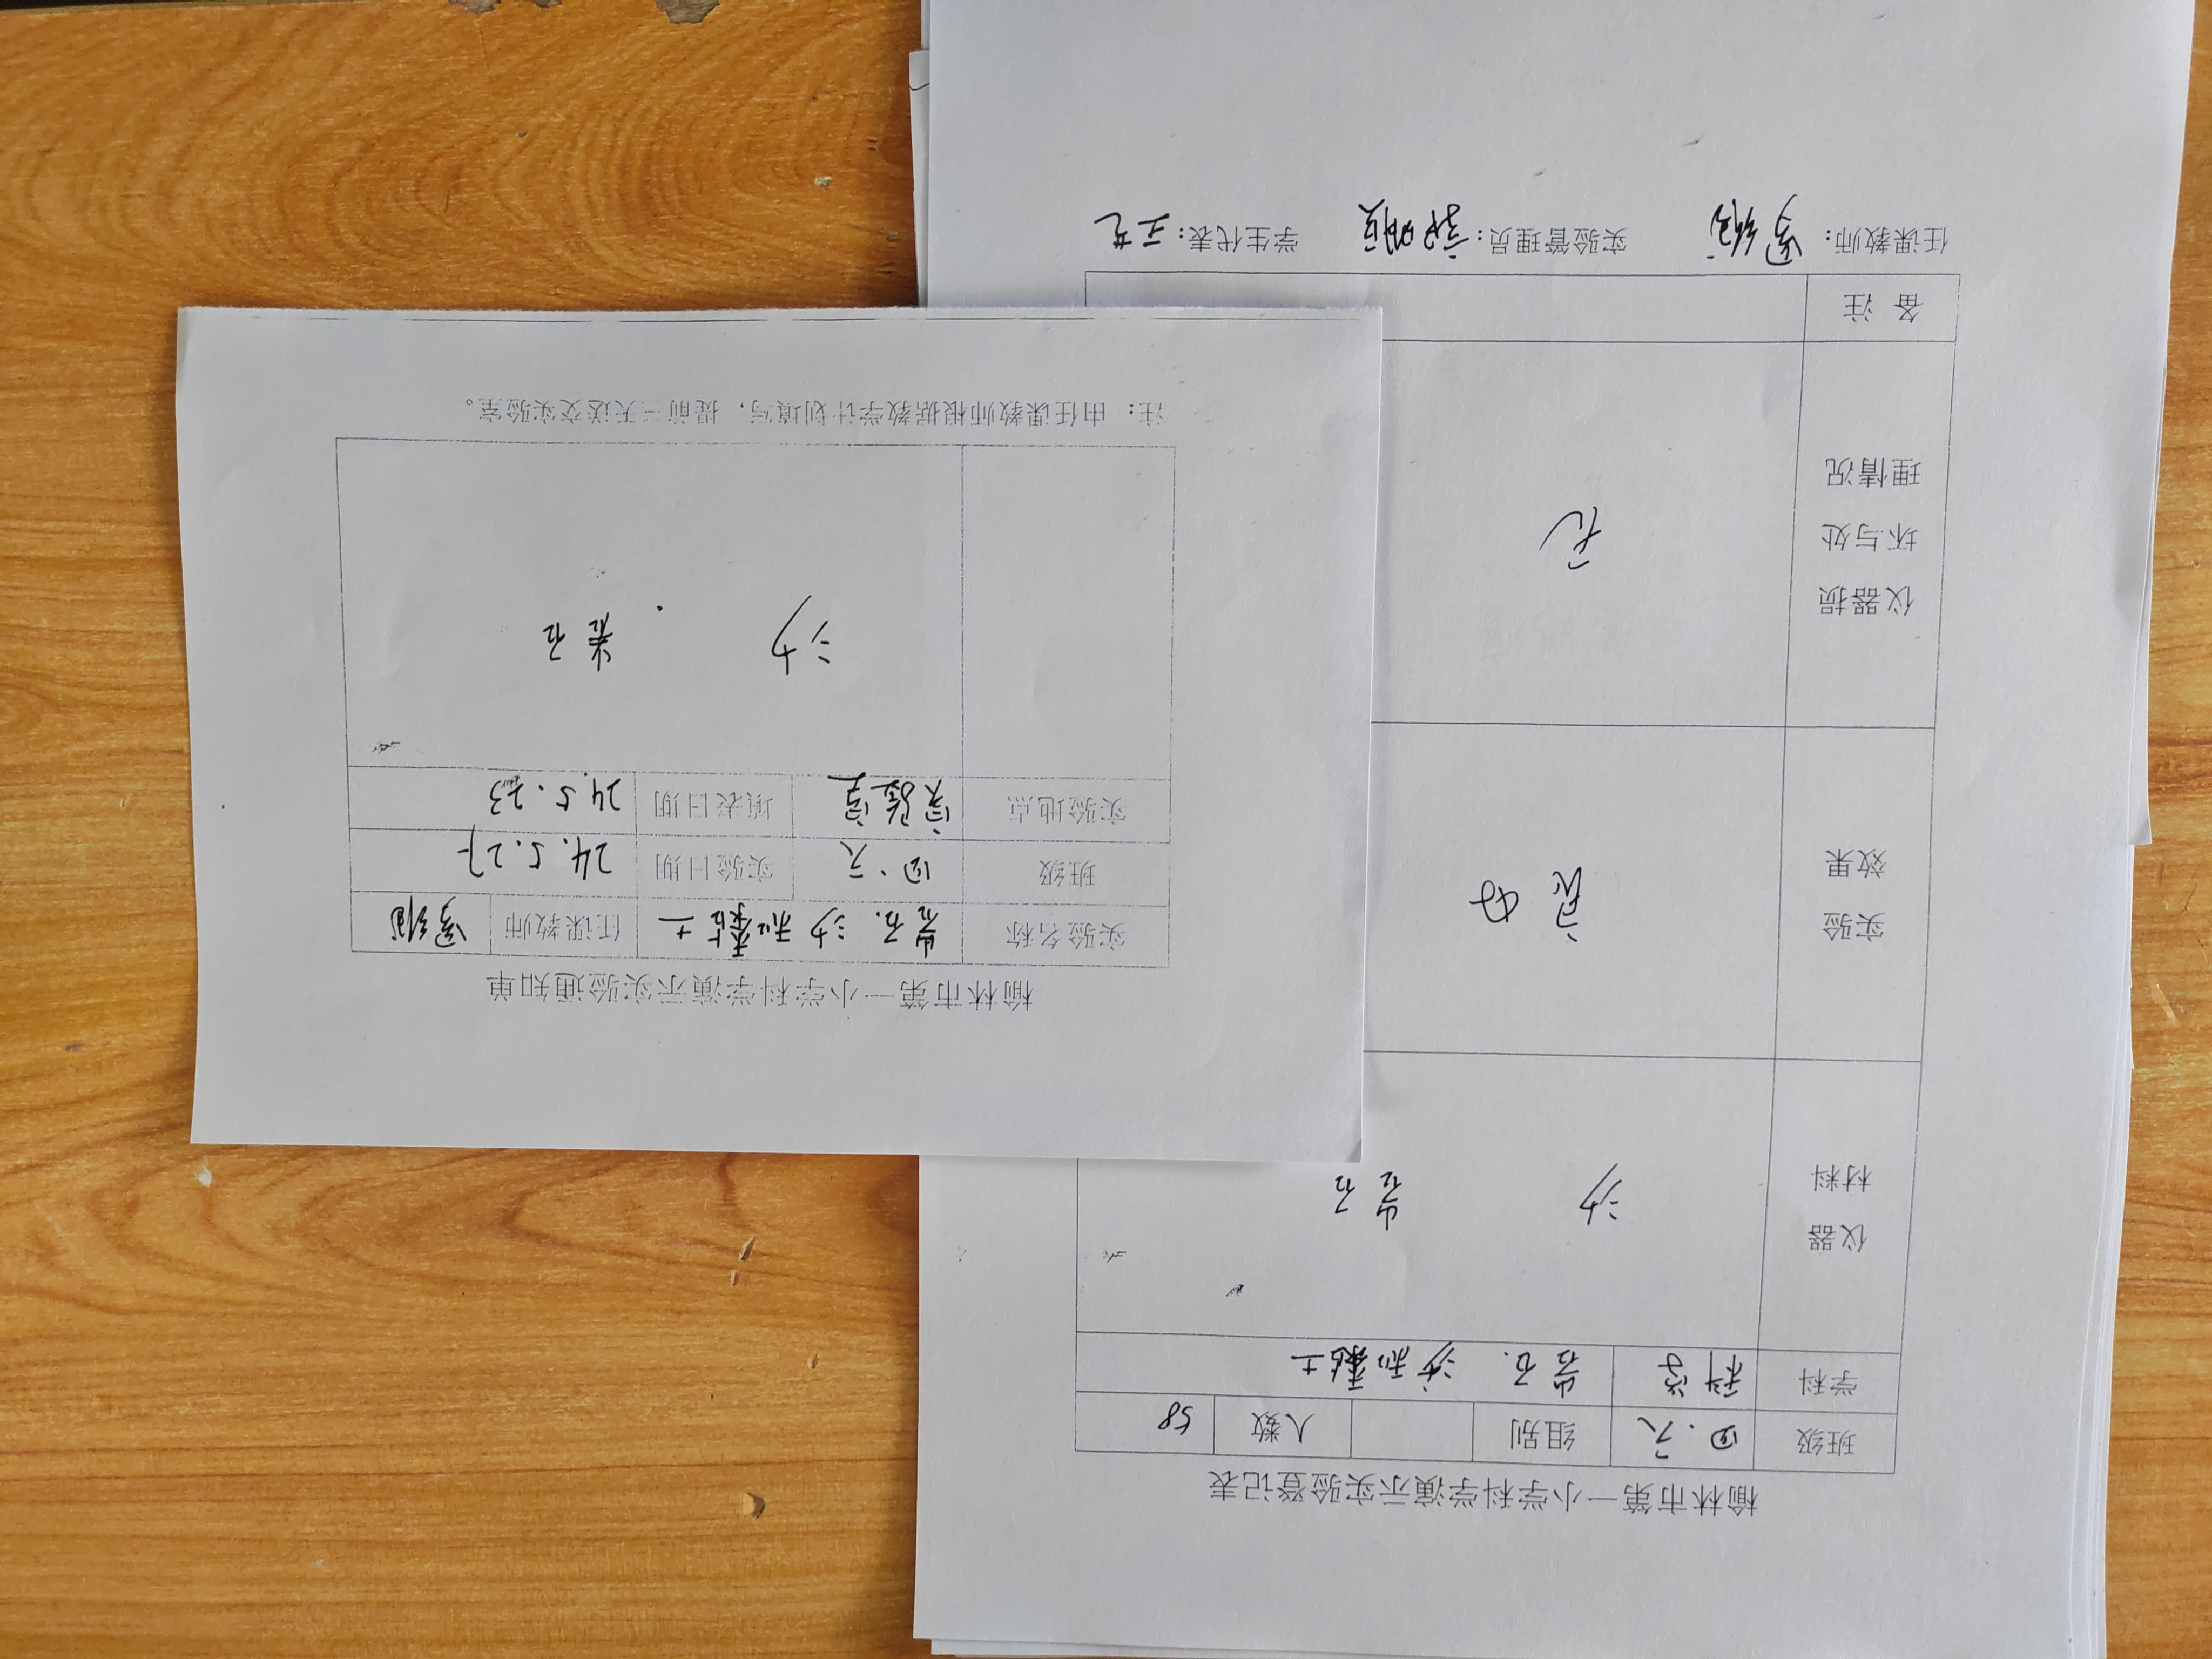 榆林市第一小学科学演示实验通知单
实验名称 岩石、沙和黏土 任课教师
班级 四、六 实验日期 24.5.27
实验地点 实验室 填表日期 24.5.23
沙 岩石
注：由任课教师根据教学计划填写，提前三天送交实验室。
榆林市第一小学科学演示实验登记表
班级 四.六 组别 人数 58
学科 科学 岩石、沙和黏土
仪器
材料
沙 岩石
实验
效果
良好
仪器损
坏与处
理情况
无
备 注
任课教师： 实验管理员： 学生代表：